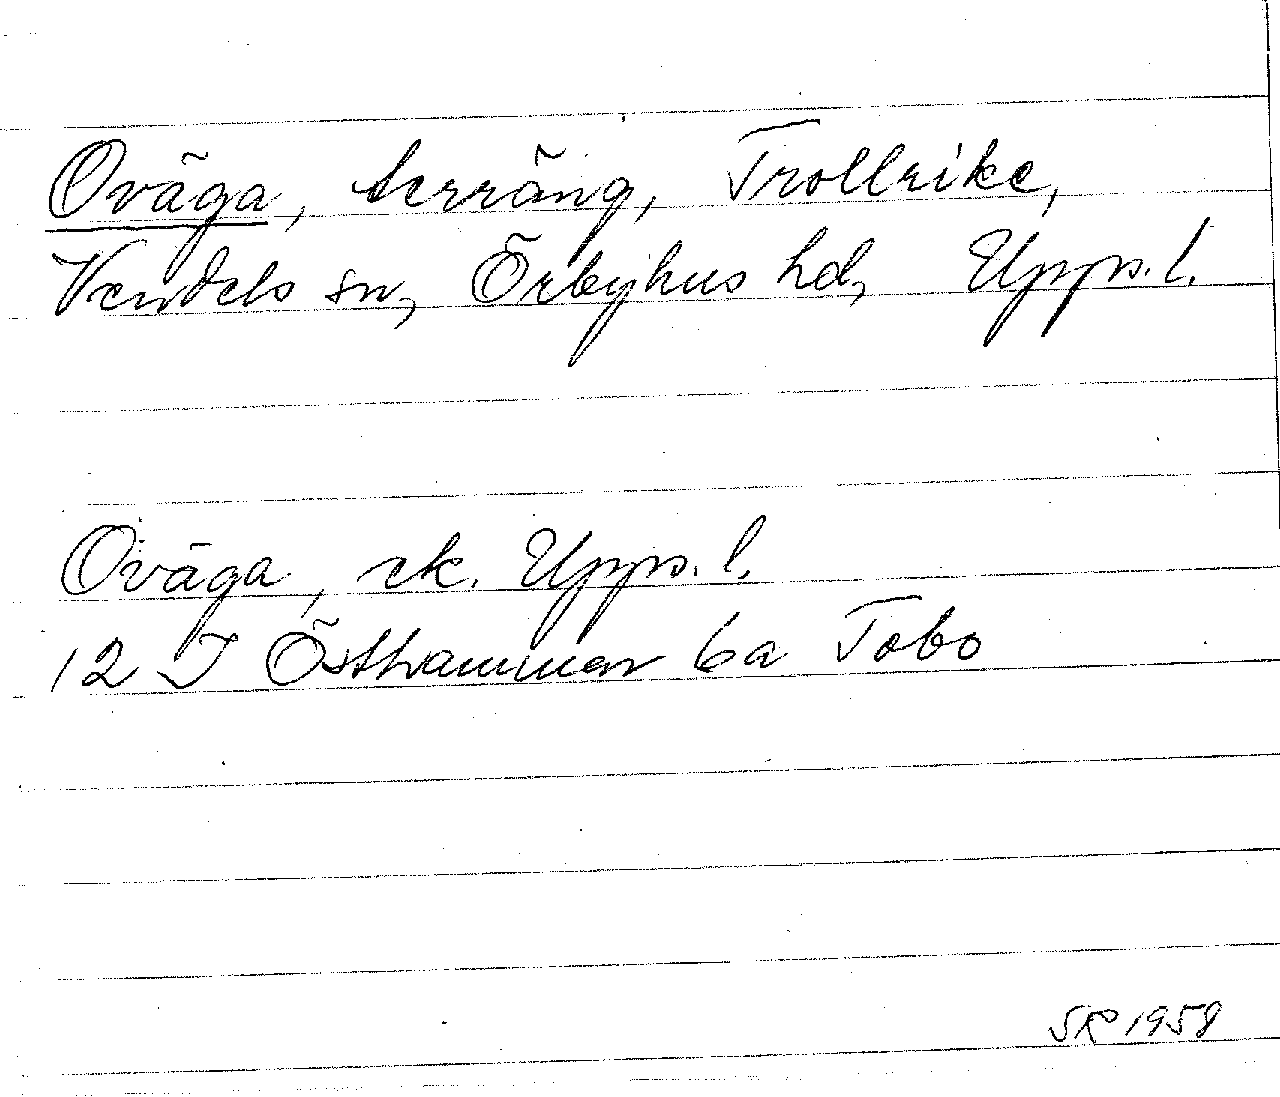 Oväga, terräng, Trollrike,
Vendels sn, Örbyhus hd, Upps. l.
Oväga, ek. Upps. l.
12 I Östhammar 6a Tobo
SR 1958